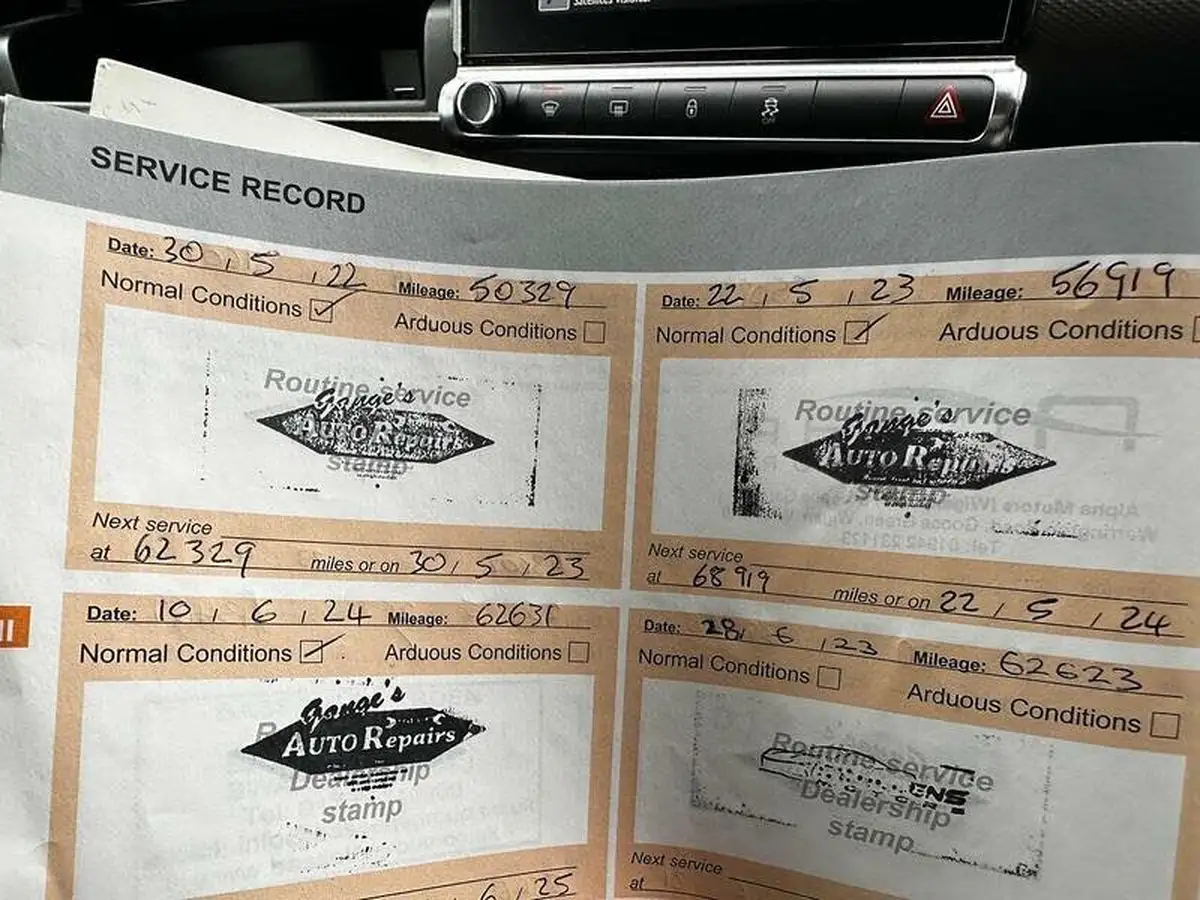 SERVICE RECORD
Date: 30 , 5 , 22 Mileage: 50329
Normal Conditions Arduous Conditions
Routine service
Gange's
AUTO Repairs
stamp
Next service
at 62329 miles or on 30 , 5 , 23
Date: 22 , 5 , 23 Mileage: 56919
Normal Conditions Arduous Conditions
Routine service
Gange's
AUTO Repairs
stamp
Next service
at 68919 miles or on 22 , 5 , 24
Date: 10 , 6 , 24 Mileage: 62631
Normal Conditions Arduous Conditions
Gange's
AUTO Repairs
Dealership
stamp
6 , 25
Date: 28, 6 , 23 Mileage: 62623
Normal Conditions Arduous Conditions
Routine service
Dealership
stamp
Next service
at